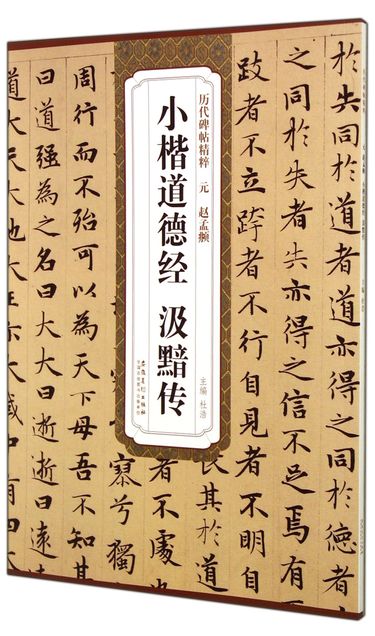 於失同於道者道亦得之同於德者
之同於失者失亦得之信不足焉有
跂者不立跨者不行自見者不明
历代碑帖精粹 元 赵孟頫
小楷道德经 汲黯传
主编 杜浩
安徽美术出版社
長其於
者不處
寥兮獨
周行而不殆可以為天下母吾不知其
曰道強為之名曰大大曰逝逝曰遠
道大天大地大王大域中